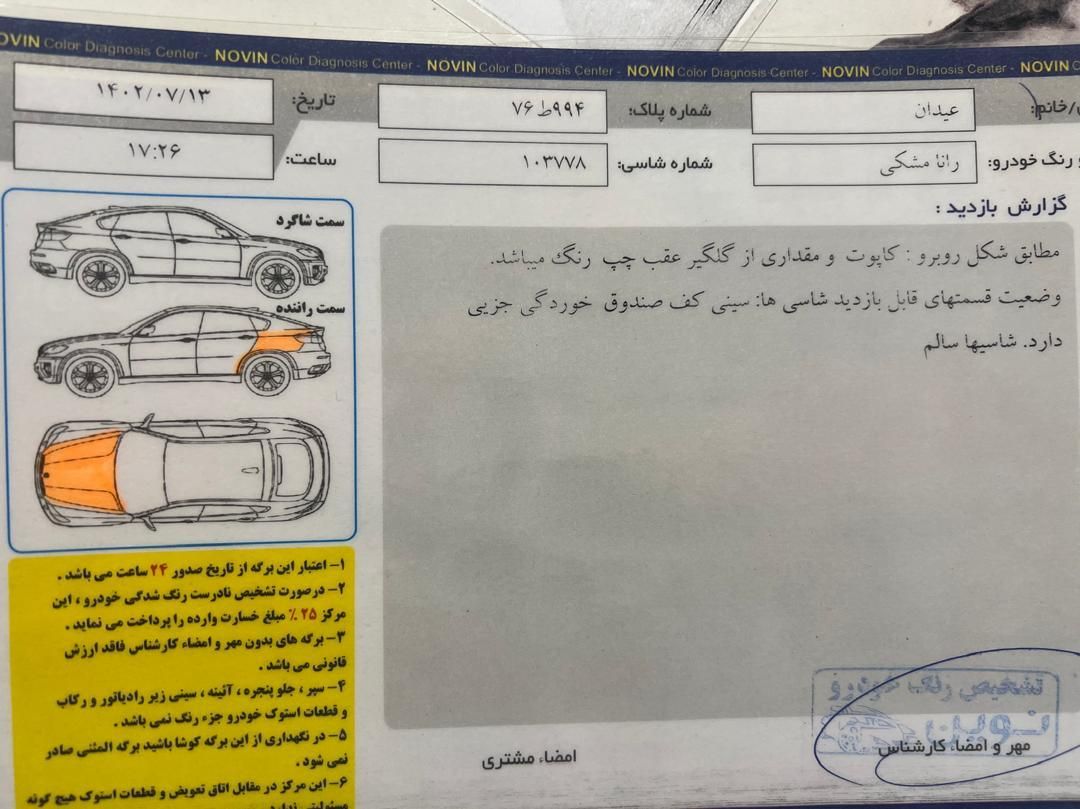 NOVIN Color Diagnosis Center - NOVIN Color Diagnosis Center - NOVIN Color Diagnosis Center - NOVIN Color Diagnosis Center - NOVIN Color Diagnosis Center - NOVIN
/خانم: عیدان شماره پلاک: ۹۹۴ط۷۶ تاریخ: ۱۴۰۲/۰۷/۱۳
و رنگ خودرو: رانا مشکی شماره شاسی: ۱۰۳۷۷۸ ساعت: ۱۷:۲۶
گزارش بازدید :
مطابق شکل روبرو : کاپوت و مقداری از گلگیر عقب چپ رنگ میباشد.
وضعیت قسمتهای قابل بازدید شاسی ها: سینی کف صندوق خوردگی جزیی
دارد. شاسیها سالم
سمت شاگرد
سمت راننده
۱- اعتبار این برگه از تاریخ صدور ۲۴ ساعت می باشد .
۲- درصورت تشخیص نادرست رنگ شدگی خودرو ، این
مرکز ۲۵ ٪ مبلغ خسارت وارده را پرداخت می نماید .
۳- برگه های بدون مهر و امضاء کارشناس فاقد ارزش
قانونی می باشد .
۴- سپر ، جلو پنجره ، آئینه ، سینی زیر رادیاتور و رکاب
و قطعات استوک خودرو جزء رنگ نمی باشد .
۵- در نگهداری از این برگه کوشا باشید برگه المثنی صادر
نمی شود .
۶- این مرکز در مقابل اتاق تعویض و قطعات استوک هیچ گونه
مسئولیتی ندارد
تشخیص رنگ خودرو
نوین
مهر و امضاء کارشناس
امضاء مشتری